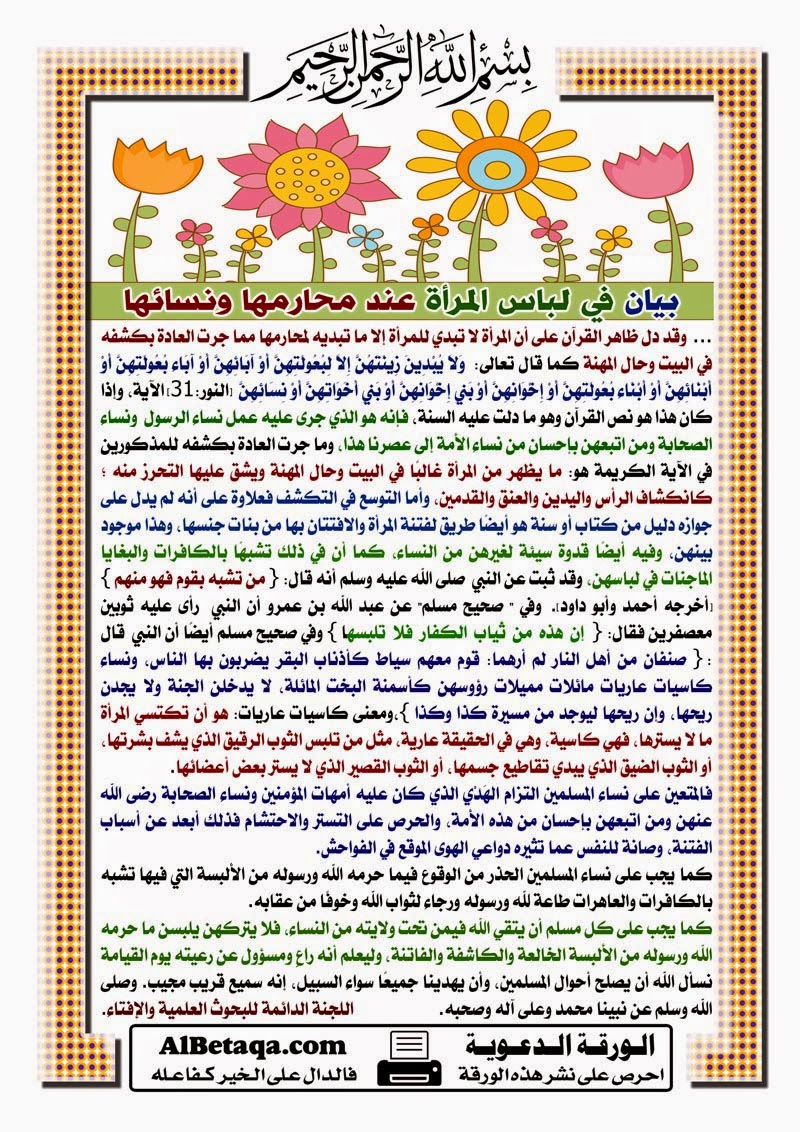 بسم الله الرحمن الرحيم
بيان في لباس المرأة عند محارمها ونسائها
... وقد دل ظاهر القرآن على أن المرأة لا تبدي للمرأة إلا ما تبديه لمحارمها مما جرت العادة بكشفه
في البيت وحال المهنة كما قال تعالى: وَلا يُبْدِينَ زِينَتَهُنَّ إِلا لِبُعُولَتِهِنَّ أَوْ آبَائِهِنَّ أَوْ آبَاءِ بُعُولَتِهِنَّ أَوْ
أَبْنَائِهِنَّ أَوْ أَبْنَاءِ بُعُولَتِهِنَّ أَوْ إِخْوَانِهِنَّ أَوْ بَنِي إِخْوَانِهِنَّ أَوْ بَنِي أَخَوَاتِهِنَّ أَوْ نِسَائِهِنَّ [النور:31] الآية، وإذا
كان هذا هو نص القرآن وهو ما دلت عليه السنة، فإنه هو الذي جرى عليه عمل نساء الرسول ونساء
الصحابة ومن اتبعهن بإحسان من نساء الأمة إلى عصرنا هذا، وما جرت العادة بكشفه للمذكورين
في الآية الكريمة هو: ما يظهر من المرأة غالبًا في البيت وحال المهنة ويشق عليها التحرز منه ؛
كانكشاف الرأس واليدين والعنق والقدمين، وأما التوسع في التكشف فعلاوة على أنه لم يدل على
جوازه دليل من كتاب أو سنة هو أيضًا طريق لفتنة المرأة والافتتان بها من بنات جنسها، وهذا موجود
بينهن، وفيه أيضًا قدوة سيئة لغيرهن من النساء، كما أن في ذلك تشبهًا بالكافرات والبغايا
الماجنات في لباسهن، وقد ثبت عن النبي صلى الله عليه وسلم أنه قال: { من تشبه بقوم فهو منهم }
[أخرجه أحمد وأبو داود]. وفي " صحيح مسلم" عن عبد الله بن عمرو أن النبي رأى عليه ثوبين
معصفرين فقال: { إن هذه من ثياب الكفار فلا تلبسها } وفي صحيح مسلم أيضًا أن النبي قال
: { صنفان من أهل النار لم أرهما: قوم معهم سياط كأذناب البقر يضربون بها الناس، ونساء
كاسيات عاريات مائلات مميلات رؤوسهن كأسنمة البخت المائلة، لا يدخلن الجنة ولا يجدن
ريحها، وإن ريحها ليوجد من مسيرة كذا وكذا }،ومعنى كاسيات عاريات: هو أن تكتسي المرأة
ما لا يسترها، فهي كاسية، وهي في الحقيقة عارية، مثل من تلبس الثوب الرقيق الذي يشف بشرتها،
أو الثوب الضيق الذي يبدي تقاطيع جسمها، أو الثوب القصير الذي لا يستر بعض أعضائها.
فالمتعين على نساء المسلمين التزام الهَدْي الذي كان عليه أمهات المؤمنين ونساء الصحابة رضى الله
عنهن ومن اتبعهن بإحسان من هذه الأمة، والحرص على التستر والاحتشام فذلك أبعد عن أسباب
الفتنة، وصانة للنفس عما تثيره دواعي الهوى الموقع في الفواحش.
كما يجب على نساء المسلمين الحذر من الوقوع فيما حرمه الله ورسوله من الألبسة التي فيها تشبه
بالكافرات والعاهرات طاعة لله ورسوله ورجاء لثواب الله وخوفًا من عقابه.
كما يجب على كل مسلم أن يتقي الله فيمن تحت ولايته من النساء، فلا يتركهن يلبسن ما حرمه
الله ورسوله من الألبسة الخالعة والكاشفة والفاتنة، وليعلم أنه راعٍ ومسؤول عن رعيته يوم القيامة
نسأل الله أن يصلح أحوال المسلمين، وأن يهدينا جميعًا سواء السبيل، إنه سميع قريب مجيب. وصلى
الله وسلم عن نبينا محمد وعلى آله وصحبه. اللجنة الدائمة للبحوث العلمية والإفتاء.
الورقة الدعوية AlBetaqa.com
احرص على نشر هذه الورقة فالدال على الخير كفاعله